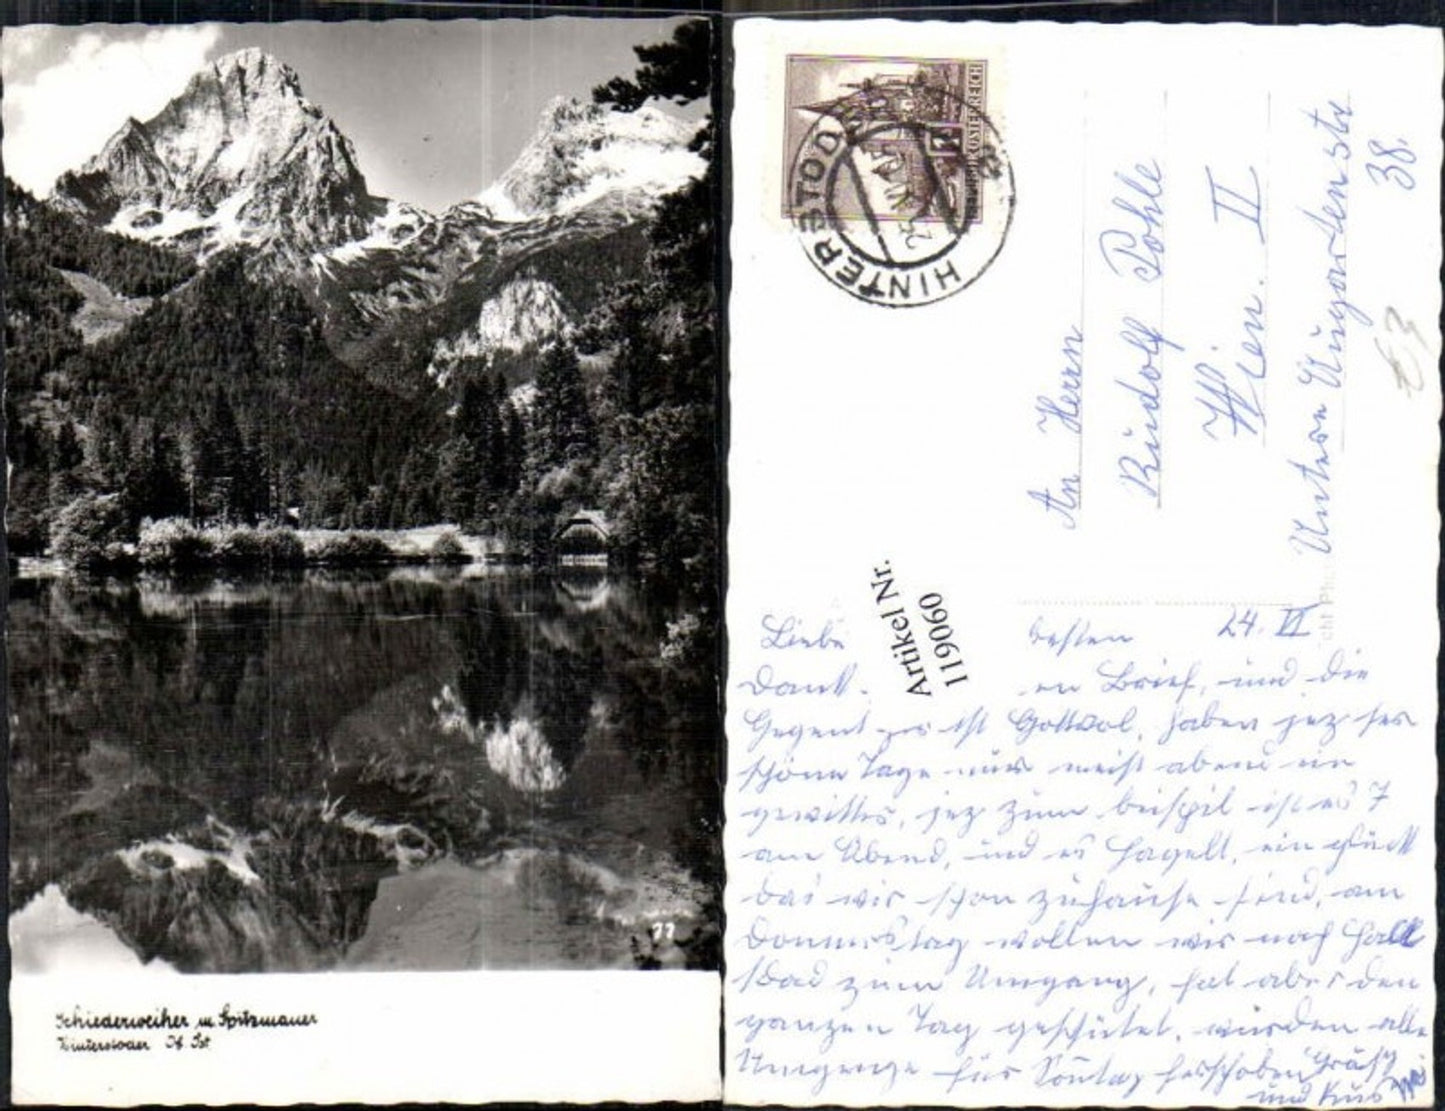 Schiederweiher m. Spitzmauer
Hinterstoder Ob. Öst.
77
REPUBLIK ÖSTERREICH
HINTERSTODER
An Herrn
Rudolf Pohle
Wien. II
Untere Augartenstr
38.
€3
Artikel Nr.
119060
24. VI
Liebe besten
Dank. Brief, und die
Gegend ist Gottvol, haben jez ser
schöne Tage nur meist abend ein
gewitter, jez zum beispil ist es 7
am Abend, und es hagelt, ein glück
das wir schon zuhause sind, am
Donnerstag wollen wir nach Hall
Bad zum Umgang, hat aber den
ganzen Tag geschütet, wurden alle
Umgenge für Sontag ferschoben Grüße
und Kus